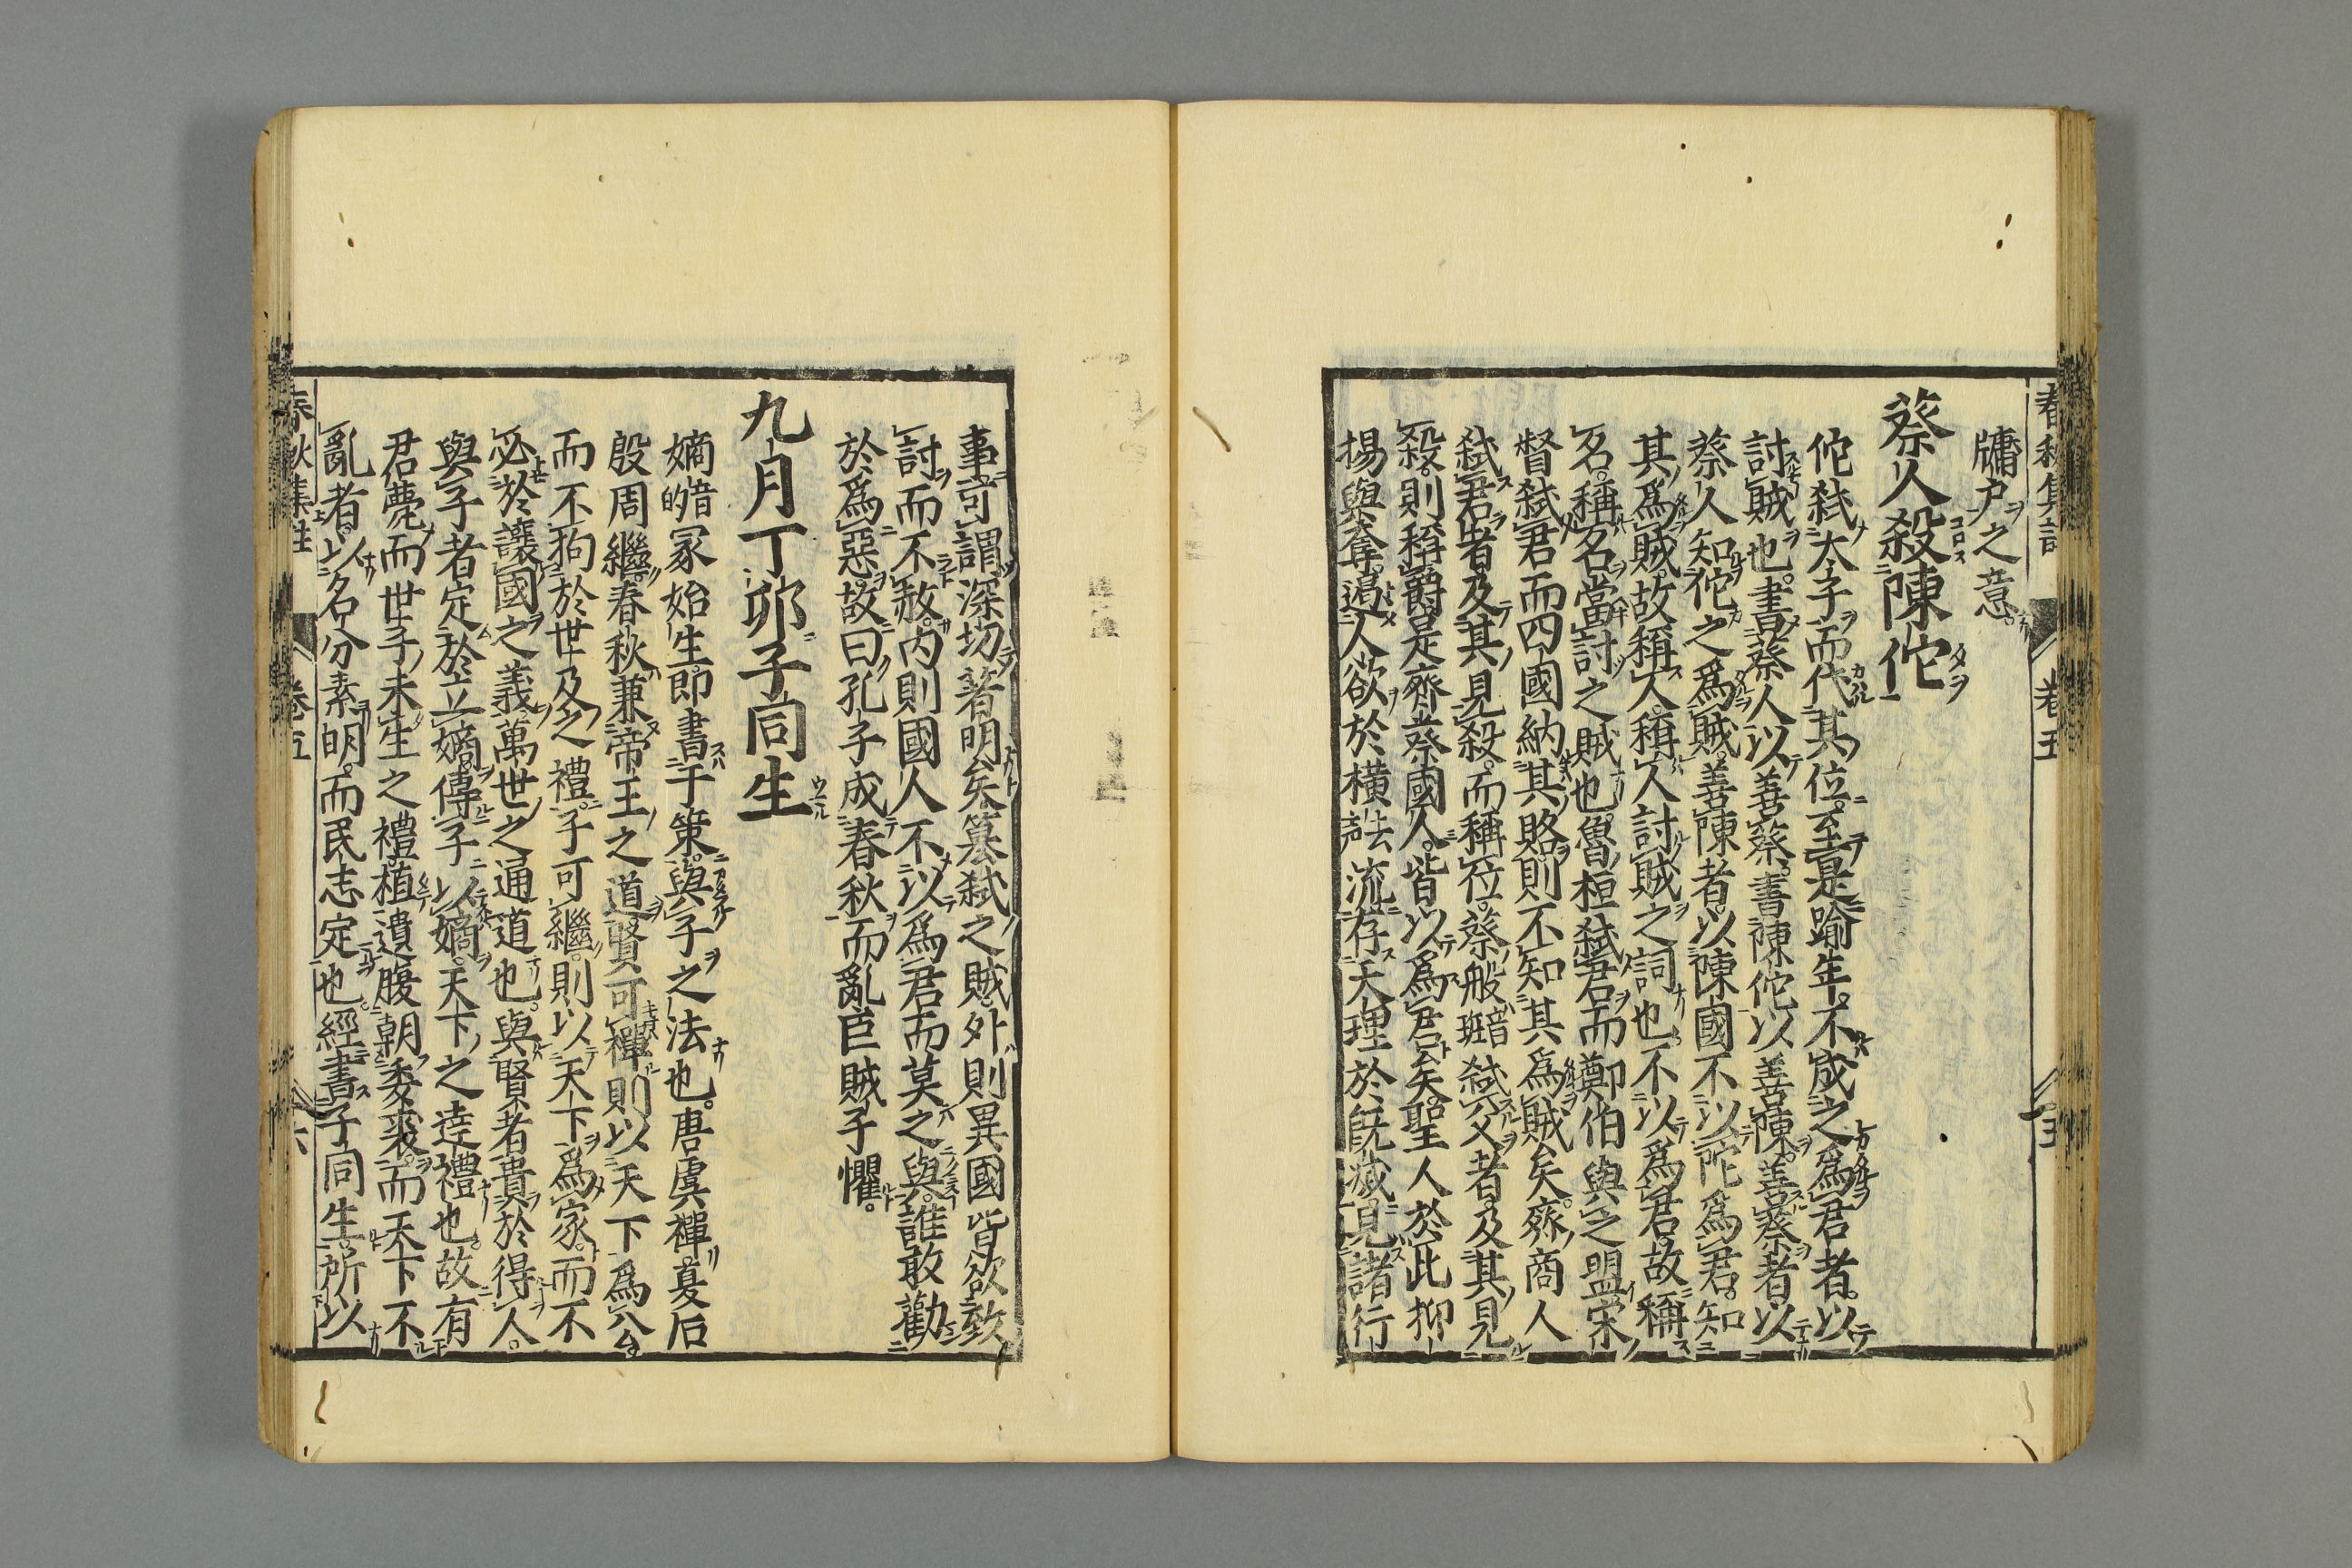 春秋集註 卷五 五
牗户之意。
蔡人殺陳佗
佗弑太子而代其位。至是踰年。不成之爲君者。以
討賊也。書蔡人以善蔡。書陳佗以善陳。善蔡者以
蔡人知佗之爲賊。善陳者。以陳國不以陀爲君。知
其爲賊。故稱人。稱人討賊之詞也。不以爲君。故稱
名。稱名。當討之賊也。魯桓弑君而鄭伯與之盟。宋
督弑君而四國納其賂。則不知其爲賊矣。齊商人
弑君者。及其見殺。而稱位。蔡般音班弑父者。及其見
殺。則稱爵。是齊蔡國人。皆以爲君矣。聖人於此抑
揚與奪。遏人欲於橫流。存天理於旣滅。見諸行
事。可謂深切著明矣。簒弑之賊。外則異國皆欲致
討而不赦。内則國人不以爲君。而莫之與。誰敢勸
於爲惡。故曰孔子成春秋。而亂臣賊子懼。
九月丁卯子同生
嫡音的冢始生。即書于策。與子之法也。唐虞禪。夏后
殷周繼。春秋兼帝王之道。賢可禪。則以天下爲公。
而不狥於世及之禮。子可繼。則以天下爲家。而不
必於讓國之義。萬世之通道也。與賢者貴於得人。
與子者定於立嫡。傳子以嫡。天下之達禮也。故有
君薨而世子未生之禮。植遺腹朝委裘。而天下不
亂者。以名分素明。而民志定也。經書子同生。所以
春秋集註 卷五 六